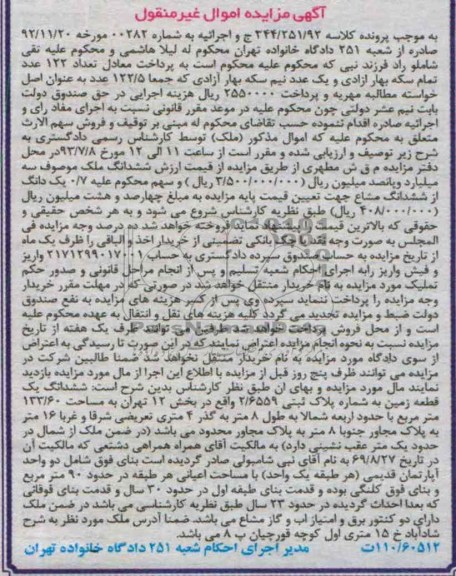 آگهی مزایده اموال غیرمنقول
به موجب پرونده کلاسه ۳۴۴/۲۵۱/۹۲ ج و اجرائیه به شماره ۰۰۲۸۲ مورخه ۹۲/۱۱/۲۰
صادره از شعبه ۲۵۱ دادگاه خانواده تهران محکوم له لیلا هاشمی و محکوم علیه نقی
شاملو راد فرزند نبی که محکوم علیه محکوم است به پرداخت معادل تعداد ۱۲۲ عدد
تمام سکه بهار آزادی و یک عدد نیم سکه بهار آزادی که جمعا ۱۲۲/۵ عدد به عنوان اصل
خواسته مطالبه مهریه و پرداخت ۲۵۵۰۰۰۰ ریال هزینه اجرایی در حق صندوق دولت
بابت نیم عشر دولتی چون محکوم علیه در موعد مقرر قانونی نسبت به اجرای مفاد رای و
اجرائیه صادره اقدام ننموده حسب تقاضای محکوم له مبنی بر توقیف و فروش سهم الارث
متعلق به محکوم علیه که اموال مذکور (ملک) توسط کارشناس رسمی دادگستری به
شرح زیر توصیف و ارزیابی شده و مقرر است از ساعت ۱۱ الی ۱۲ مورخ ۹۳/۷/۸در محل
دفتر مزایده م ق ش مطهری از طریق مزایده از قیمت ارزش ششدانگ ملک موصوف سه
میلیارد وپانصد میلیون ریال (۳/۵۰۰/۰۰۰/۰۰۰ ریال ) و سهم محکوم علیه ۰/۷ یک دانگ
از ششدانگ مشاع جهت تعیین قیمت پایه مزایده به مبلغ چهارصد و هشت میلیون ریال
(۴۰۸/۰۰۰/۰۰۰ ریال) طبق نظریه کارشناس شروع می شود و به هر شخص حقیقی و
حقوقی که بالاترین قیمت را پیشنهاد نماید فروخته خواهد شد ده درصد وجه مزایده فی
المجلس به صورت وجه نقد یا چک بانکی تضمینی از خریدار اخذ و الباقی را ظرف یک ماه
از تاریخ مزایده به حساب صندوق سپرده دادگستری به حساب ۲۱۷۱۲۹۹۰۱۷۰۰۰ واریز
و فیش واریز رابه اجرای احکام شعبه تسلیم و پس از انجام مراحل قانونی و صدور حکم
تملیک مورد مزایده به نام خریدار منتقل خواهد شد در صورتی که در مهلت مقرر خریدار
وجه مزایده را پرداخت ننماید سپرده وی پس از کسر هزینه های مزایده به نفع صندوق
دولت ضبط و مزایده تجدید می گردد کلیه هزینه های نقل و انتقال به عهده محکوم علیه
است و از محل فروش پرداخت خواهد شد طرفین می توانند ظرف یک هفته از تاریخ
مزایده نسبت به نحوه انجام مزایده اعتراض نمایند که در این صورت تا رسیدگی به اعتراض
از سوی دادگاه مورد مزایده به نام خریدار منتقل نخواهد شد ضمنا طالبین شرکت در
مزایده می توانند ظرف پنج روز قبل از مزایده با اطلاع این اجرا از مال مورد مزایده بازدید
نمایند مال مورد مزایده و بهای ان طبق نظر کارشناس بدین شرح است: ششدانگ یک
قطعه زمین به شماره پلاک ثبتی ۲/۶۵۵۹ واقع در بخش ۱۲ تهران به مساحت ۱۳۳/۶۰
متر مربع با حدود اربعه شمالا به طول ۸ متر به گذر ۴ متری تعریضی شرقا و غربا ۱۶ متر
به پلاک مجاور جنوبا ۸ متر به پلاک مجاور محدود می باشد (در ضمن ملک از شمال در
حدود یک متر عقب نشینی دارد) به مالکیت آقای همراه همراهی دشتغی که مالکیت آن
در تاریخ ۶۹/۸/۲۷ به نام آقای نبی شامبولی صادر گردیده است بنای فوق شامل دو واحد
آپارتمان قدیمی (هر طبقه یک واحد) با مساحت اعیانی هر طبقه در حدود ۹۰ متر مربع
و بنای فوق کلنگی بوده و قدمت بنای طبقه اول در حدود ۳۰ سال و قدمت بنای فوقانی
که بعدا احداث گردیده در حدود ۲۳ سال طبق نظریه کارشناسی می باشد در ضمن ملک
دارای دو کنتور برق و امتیاز اب و گاز مشاع می باشد. ضمنا آدرس ملک مورد نظر به شرح
شادآباد خ ۱۵ متری اول کوچه قورچیان پ ۸ می باشد.
۱۱۰/۶۰۵۱۲ت مدیر اجرای احکام شعبه ۲۵۱ دادگاه خانواده تهران